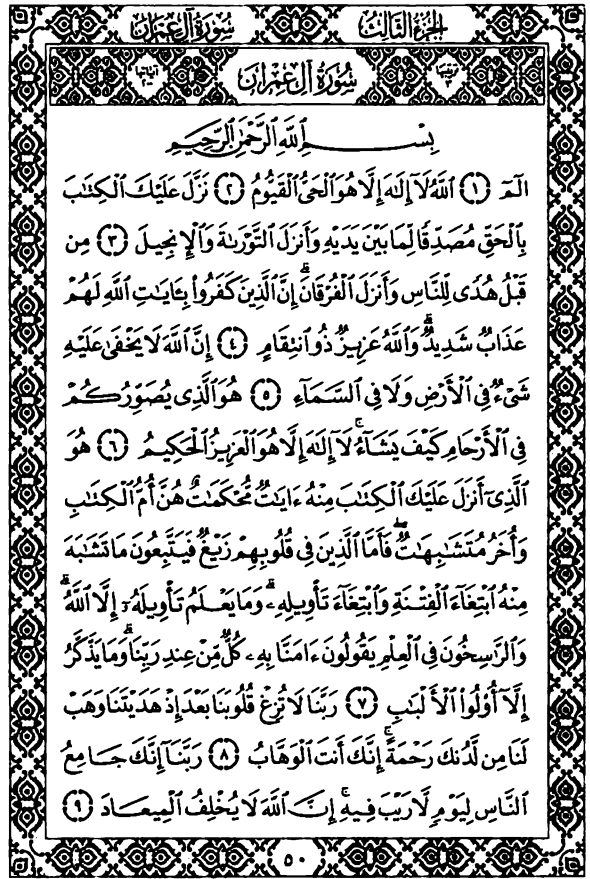 سُورَةُ آلِ عِمْرَان الجُزْءُ الثَّالِثُ
سُورَةُ آلِ عِمْرَان
بِسْمِ اللَّهِ الرَّحْمَٰنِ الرَّحِيمِ
الٓمٓ ﴿١﴾ اللَّهُ لَآ إِلَٰهَ إِلَّا هُوَ الْحَىُّ الْقَيُّومُ ﴿٢﴾ نَزَّلَ عَلَيْكَ الْكِتَٰبَ
بِالْحَقِّ مُصَدِّقًا لِّمَا بَيْنَ يَدَيْهِ وَأَنزَلَ التَّوْرَىٰةَ وَالْإِنجِيلَ ﴿٣﴾ مِن
قَبْلُ هُدًى لِّلنَّاسِ وَأَنزَلَ الْفُرْقَانَ ۗ إِنَّ الَّذِينَ كَفَرُوا۟ بِـَٔايَٰتِ اللَّهِ لَهُمْ
عَذَابٌ شَدِيدٌ ۗ وَاللَّهُ عَزِيزٌ ذُو انتِقَامٍ ﴿٤﴾ إِنَّ اللَّهَ لَا يَخْفَىٰ عَلَيْهِ
شَىْءٌ فِى الْأَرْضِ وَلَا فِى السَّمَآءِ ﴿٥﴾ هُوَ الَّذِى يُصَوِّرُكُمْ
فِى الْأَرْحَامِ كَيْفَ يَشَآءُ ۚ لَآ إِلَٰهَ إِلَّا هُوَ الْعَزِيزُ الْحَكِيمُ ﴿٦﴾ هُوَ
الَّذِىٓ أَنزَلَ عَلَيْكَ الْكِتَٰبَ مِنْهُ ءَايَٰتٌ مُّحْكَمَٰتٌ هُنَّ أُمُّ الْكِتَٰبِ
وَأُخَرُ مُتَشَٰبِهَٰتٌ ۖ فَأَمَّا الَّذِينَ فِى قُلُوبِهِمْ زَيْغٌ فَيَتَّبِعُونَ مَا تَشَٰبَهَ
مِنْهُ ابْتِغَآءَ الْفِتْنَةِ وَابْتِغَآءَ تَأْوِيلِهِۦ ۗ وَمَا يَعْلَمُ تَأْوِيلَهُۥٓ إِلَّا اللَّهُ ۗ
وَالرَّٰسِخُونَ فِى الْعِلْمِ يَقُولُونَ ءَامَنَّا بِهِۦ كُلٌّ مِّنْ عِندِ رَبِّنَا ۗ وَمَا يَذَّكَّرُ
إِلَّآ أُو۟لُوا۟ الْأَلْبَٰبِ ﴿٧﴾ رَبَّنَا لَا تُزِغْ قُلُوبَنَا بَعْدَ إِذْ هَدَيْتَنَا وَهَبْ
لَنَا مِن لَّدُنكَ رَحْمَةً ۚ إِنَّكَ أَنتَ الْوَهَّابُ ﴿٨﴾ رَبَّنَآ إِنَّكَ جَامِعُ
النَّاسِ لِيَوْمٍ لَّا رَيْبَ فِيهِ ۚ إِنَّ اللَّهَ لَا يُخْلِفُ الْمِيعَادَ ﴿٩﴾
٥٠